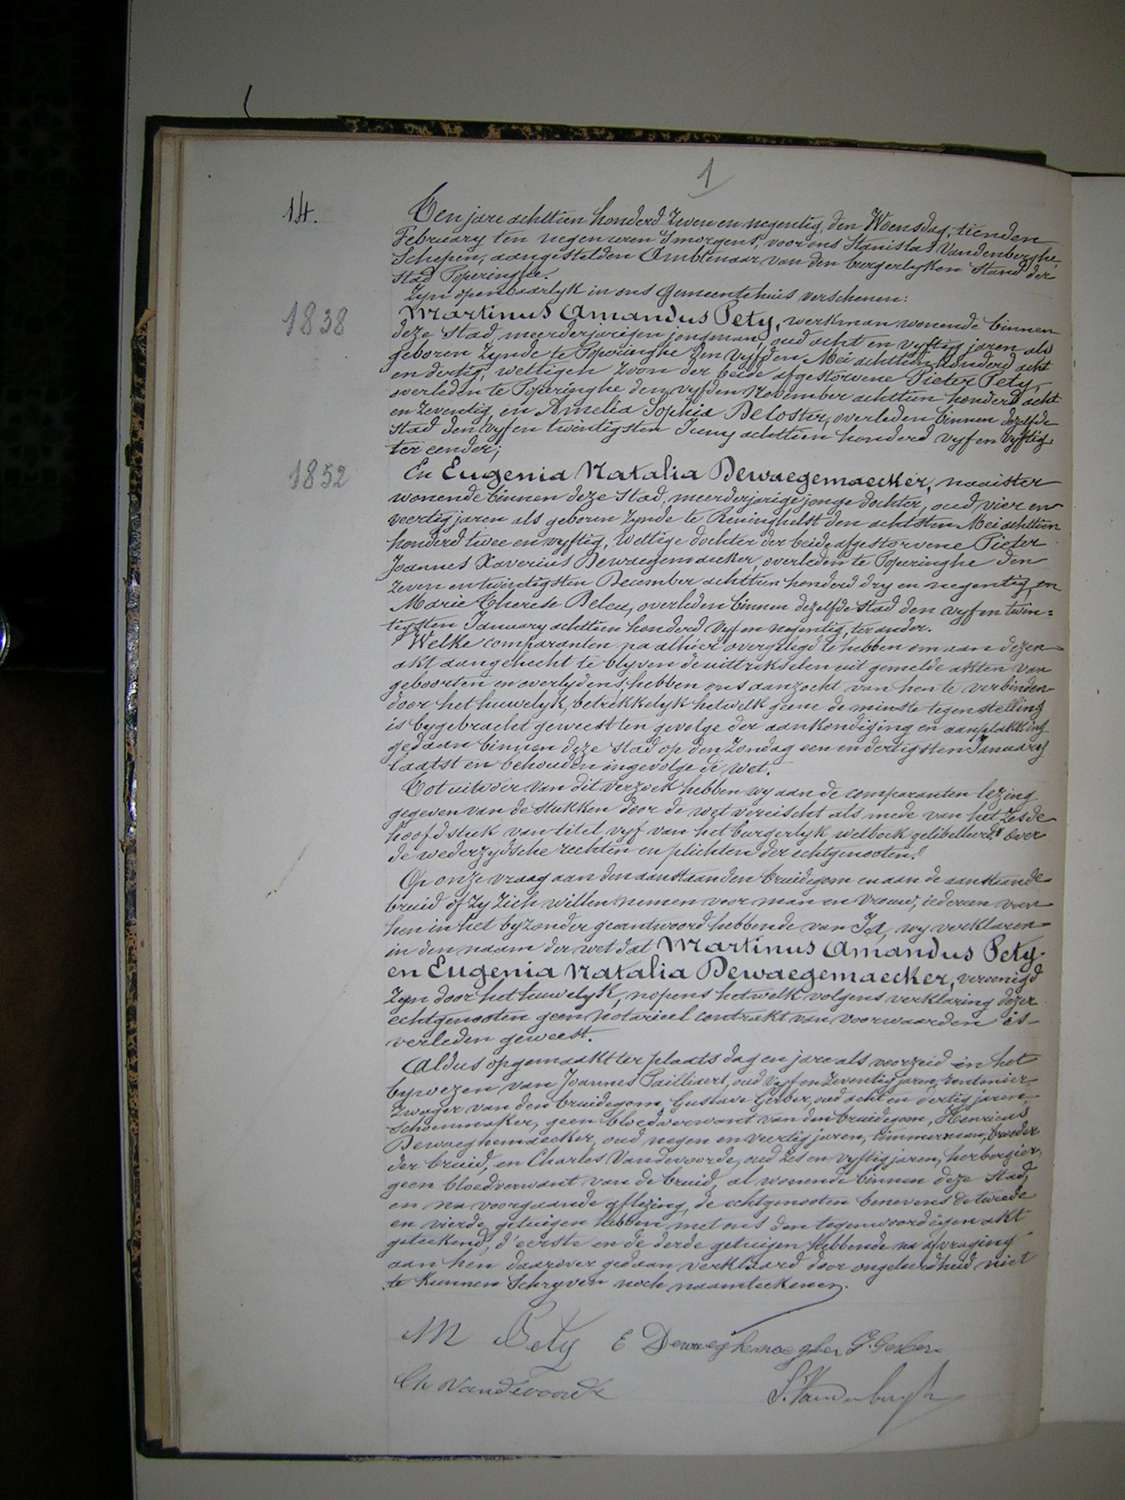 1
14.
Ten jare achttien honderd zeven en negentig, den Woensdag, tienden
February ten negen uren 's morgens, voor ons Stanislas Vandenberghe,
Schepen, aangestelden Ambtenaar van den burgerlyken Stand der
stad Poperinghe.
Zyn openbaarlyk in ons Gemeentehuis verschenen:
1838
Martinus Amandus Pety, werkman wonende binnen
deze stad, meerderjarigen jongman, oud acht en vyftig jaren als
geboren zynde te Poperinghe den vyfden Mei achttien honderd acht
en dertig, wettigen zoon der beide afgestorvene Pieter Pety,
overleden te Poperinghe den vyfden November achttien honderd acht
en zeventig, en Amelia Sophia Decoster, overleden binnen dezelfde
stad den vyf en twintigsten Juny achttien honderd vyf en vyftig
ter eender;
1852
En Eugenia Natalia Dewaegemaecker, naaister
wonende binnen deze stad, meerderjarige jonge dochter, oud vier en
veertig jaren als geboren zynde te Reninghelst den achtsten Mei achttien
honderd twee en vyftig, wettige dochter der beide afgestorvene Pieter
Joannes Xaverius Dewaegemaecker, overleden te Poperinghe den
zeven en twintigsten December achttien honderd dry en negentig, en
Marie Therese Beleu, overleden binnen dezelfde stad den vyf en twin=
tigsten January achttien honderd vyf en negentig, ter ander.
Welke comparanten na alhier overgelegd te hebben om aan dezen
akt aangehecht te blyven de uittrekselen uit gemelde akten van
geboorten en overlydens, hebben ons aanzocht van hen te verbinden
door het huwelyk, betrekkelyk hetwelk geene de minste tegenstelling
is bygebracht geweest ten gevolge der aankondiging en aanplakking
gedaan binnen deze stad op den Zondag een en dertigsten January
laatst en behouden ingevolge de wet.
Tot uitvoer van dit verzoek hebben wy aan de comparanten lezing
gegeven van de stukken door de wet vereischt als mede van het zesde
hoofdstuk van titel vyf van het burgerlyk wetboek gelibelleerd "over
de wederzydsche rechten en plichten der echtgenooten."
Op onze vraag aan den aanstaanden bruidegom en aan de aanstaande
bruid of zy zich willen nemen voor man en vrouw, iedereen van
hen in het byzonder geantwoord hebbende van Ja, wy verklaren
in den naam der wet dat Martinus Amandus Pety
en Eugenia Natalia Dewaegemaecker, vereenigd
zyn door het huwelyk, nopens hetwelk volgens verklaring dezer
echtgenooten geen notarieel contrakt van voorwaarden is
verleden geweest.
Aldus opgemaakt ter plaats dag en jare als voorzeid in het
bywezen van Joannes Pailliaert, oud vyf en zeventig jaren, rentenier,
zwager van den bruidegom, Gustave Gerber, oud acht en dertig jaren,
schoenmaker, geen bloedverwant van den bruidegom, Henricus
Dewaeghemaecker, oud negen en veertig jaren, timmerman, broeder
der bruid, en Charles Vandevoorde, oud zes en vyftig jaren, herbergier,
geen bloedverwant van de bruid, al wonende binnen deze stad,
en na voorgaande aflezing, de echtgenooten benevens de tweede
en vierde getuigen hebben met ons den tegenwoordigen akt
geteekend, d'eerste en de derde getuigen hebbende na afvraging
aan hen daarover gedaan verklaard door ongeleerdheid niet
te kunnen schryven noch naamteekenen.
M Pety E Dewaeghemaeghe G. Gerber
Ch Vandevoorde S. Vandenberghe